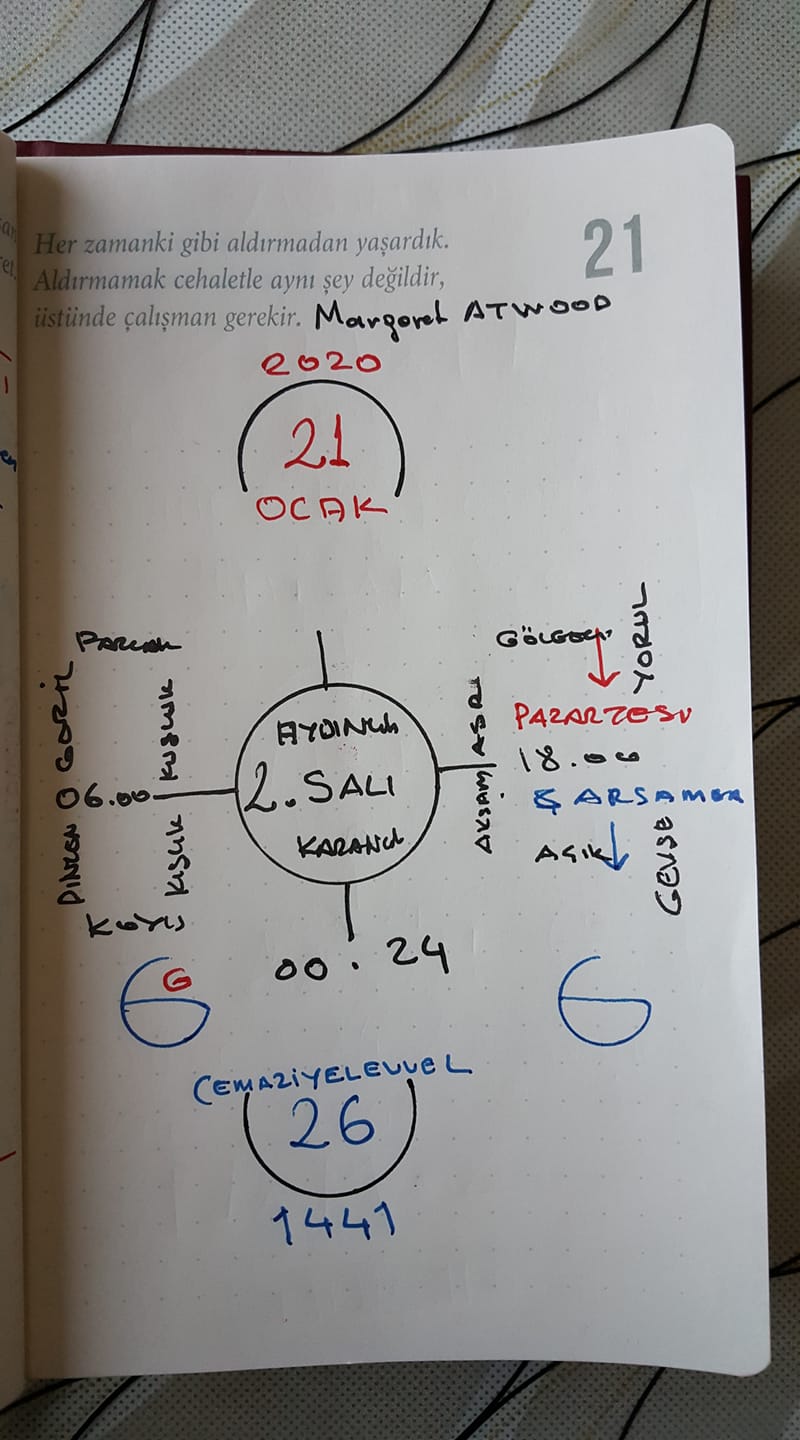 Her zamanki gibi aldırmadan yaşardık.
21
Aldırmamak cehaletle aynı şey değildir,
üstünde çalışman gerekir. Margaret ATWOOD
2020
21
OCAK
PARLAK
GÖLGE
YORUL
GERİL
KUŞLUK
AYDINLIK
ASRI
PAZARTESİ
18.00
06.00
2. SALI
ÇARŞAMBA
DİNLEN
KIŞLIK
KARANLIK
AKŞAM
AÇIK
GEVŞE
KOYU
00.24
G
CEMAZİYELEVVEL
26
1441